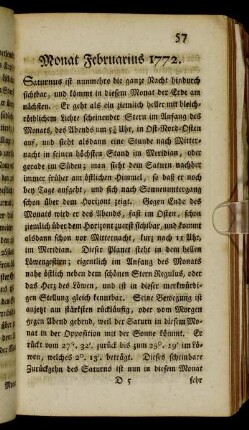 57
Monat Februarius 1772.
Saturnus ist nunmehro die ganze Nacht hindurch
sichtbar, und kömmt in diesem Monat der Erde am
nächsten. Er geht als ein ziemlich heller mit bleich-
röthlichem Lichte scheinender Stern im Anfang des
Monats, des Abends um 5¼ Uhr, in Ost-Nord-Osten
auf, und steht alsdann eine Stunde nach Mitter-
nacht in seinen höchsten Stand im Meridian, oder
gerade im Süden; man sieht dem Saturn nachher
immer früher am östlichen Himmel, so daß er noch
bey Tage aufgeht, und sich nach Sonnenuntergang
schon über dem Horizont zeigt. Gegen Ende des
Monats wird er des Abends, fast im Osten, schon
ziemlich über dem Horizont zuerst sichtbar, und kommt
alsdann schon vor Mitternacht, kurz nach 11 Uhr
im Meridian. Dieser Planet steht in dem hellen
Löwengestirn; eigentlich im Anfang des Monats
nahe östlich neben dem schönen Stern Regulus, oder
das Herz des Löwen, und ist in dieser merkwürdi-
gen Stellung gleich kennbar. Seine Bewegung ist
anjetzt am stärksten rückläufig, oder vom Morgen
gegen Abend gehend, weil der Saturn in diesem Mo-
nat in der Opposition mit der Sonne kömmt. Er
rückt vom 27°. 32′. zurück bis zum 25°. 19′ im Lö-
wen, welches 2°. 13′. beträgt. Dieses scheinbare
Zurückgehn des Saturns ist nun in diesem Monat
D 5 sehr